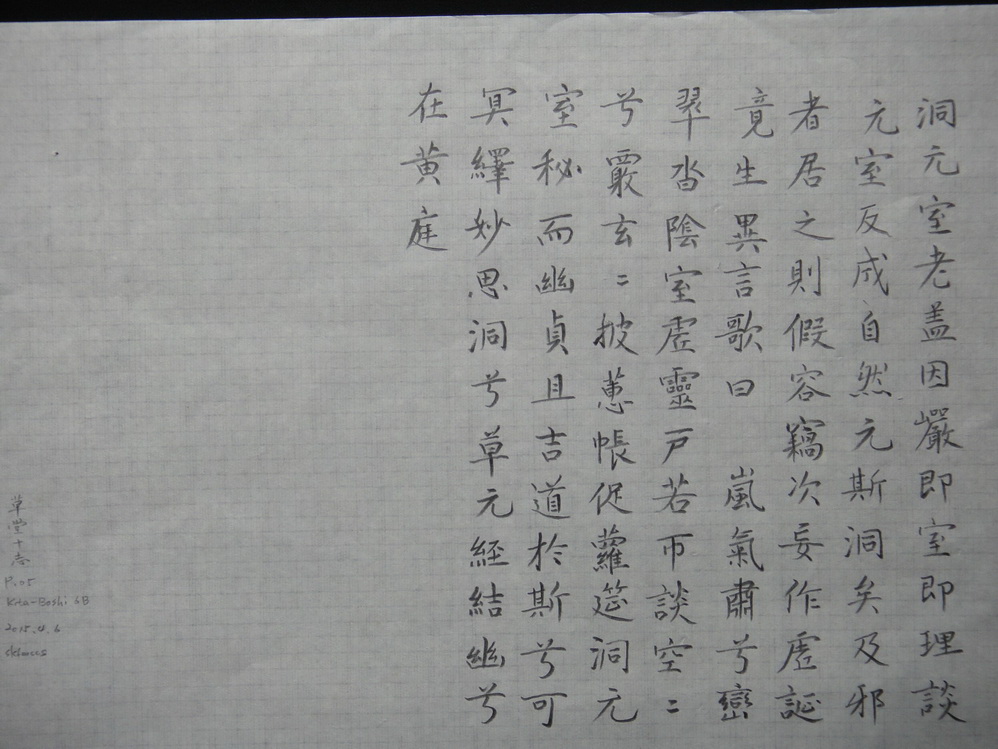 洞元室老盖因巖即室即理談
元室反成自然元斯洞矣及邪
者居之則假容竊次妄作虛誕
竟生異言歌曰 嵐氣肅兮巒
翠沓陰室虛靈戸若帀談空〻
兮覈玄〻披蕙帳促蘿筵洞元
室秘而幽貞且吉道於斯兮可
冥繹妙思洞兮草元經結幽兮
在黄庭
草堂十志
P.05
Kita-Boshi 6B